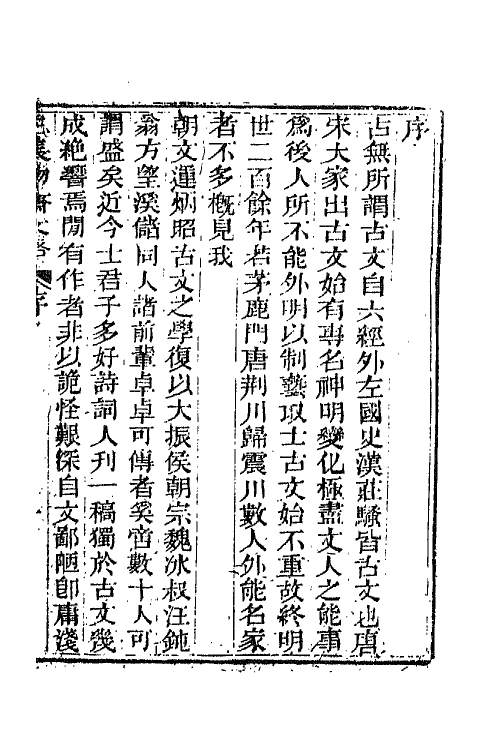 序
古無所謂古文自六經外左國史漢莊騷皆古文也唐
宋大家出古文始有專名神明變化極盡文人之能事
爲後人所不能外明以制藝取士古文始不重故終明
世二百餘年若茅鹿門唐荆川歸震川數人外能名家
者不多概見我
朝文運炳昭古文之學復以大振侯朝宗魏冰叔汪鈍
翁方望溪儲同人諸前輩卓卓可傳者奚啻數十人可
謂盛矣近今士君子多好詩詞人刊一稿獨於古文幾
成絶響焉間有作者非以詭怪艱深自文鄙陋卽庸淺
齋文 序